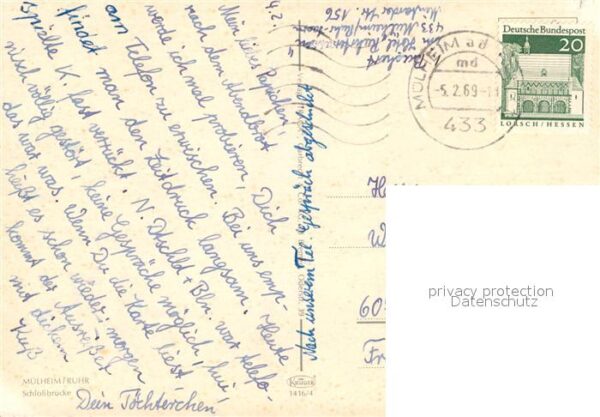 4.2.
Mein liebes Papichen!
nach dem Abendbrot
werde ich mal probieren, Dich
am Telefon zu erwischen. Bei uns emp-
findet man den Zeitdruck langsam. Heute
spielte K. fast verrückt. N. Dtschld + Bln. war telefo-
nisch völlig gestört, keine Gespräche möglich, hui,
das war was. Wenn Du die Karte liest
heißt es schon wieder: morgen
kommt der Ausreißer
mit dickem
Kuß
Dein Töchterchen
Nach unserem Tel. Gespräch abgesendet
433 Mülheim/Ruhr
156
MÜLHEIM a d
md
-5.2.69-
433
Deutsche Bundespost
20
LORSCH/HESSEN
H
W
60
Fr
privacy protection
Datenschutz
MÜLHEIM/RUHR
Schloßbrücke
Krüger
1416/4